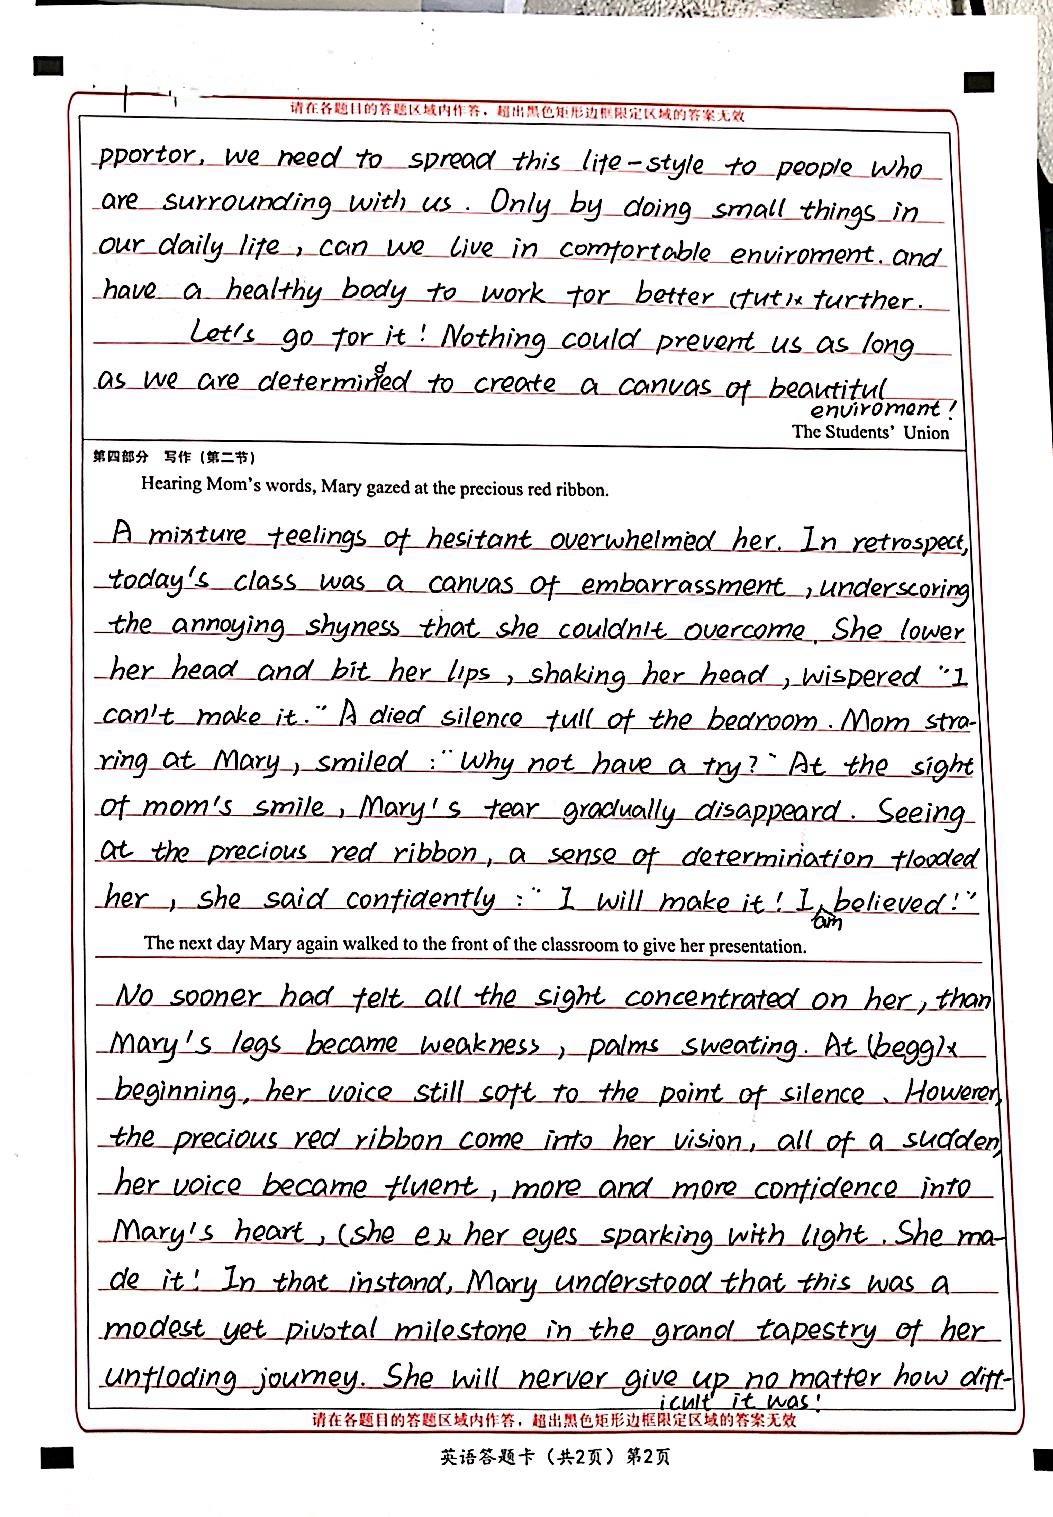 请在各题目的答题区域内作答，超出黑色矩形边框限定区域的答案无效
pportor, we need to spread this life-style to people who
are surrounding with us. Only by doing small things in
our daily life, can we live in comfortable enviroment. and
have a healthy body to work for better (fut)x further.
Let's go for it! Nothing could prevent us as long
as we are determinded to create a canvas of beautiful
enviroment!
The Students' Union
第四部分 写作（第二节）
Hearing Mom's words, Mary gazed at the precious red ribbon.
A mixture feelings of hesitant overwhelmed her. In retrospect,
today's class was a canvas of embarrassment, underscoring
the annoying shyness that she couldn't overcome. She lower
her head and bit her lips, shaking her head, wispered "I
can't make it." A died silence full of the bedroom. Mom stra-
ring at Mary, smiled : "Why not have a try?" At the sight
of mom's smile, Mary's tear gradually disappeard. Seeing
at the precious red ribbon, a sense of determination flooded
her, she said confidently : "I will make it! I am believed!"
The next day Mary again walked to the front of the classroom to give her presentation.
No sooner had felt all the sight concentrated on her, than
Mary's legs became weakness, palms sweating. At (begg)x
beginning, her voice still soft to the point of silence. Howerer,
the precious red ribbon come into her vision, all of a sudden,
her voice became fluent, more and more confidence into
Mary's heart, (she e)x her eyes sparking with light. She ma-
de it! In that instand, Mary understood that this was a
modest yet pivotal milestone in the grand tapestry of her
unfloding journey. She will nerver give up no matter how diff-
icult it was!
请在各题目的答题区域内作答，超出黑色矩形边框限定区域的答案无效
英语答题卡（共2页）第2页